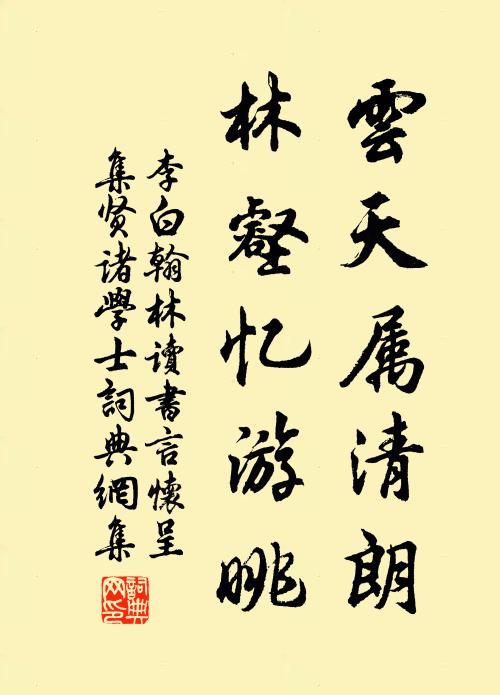 雲天属清朗
林壑忆游眺
李白翰林讀書言懷呈
集贤诸學士詞典網集
詞典
网印